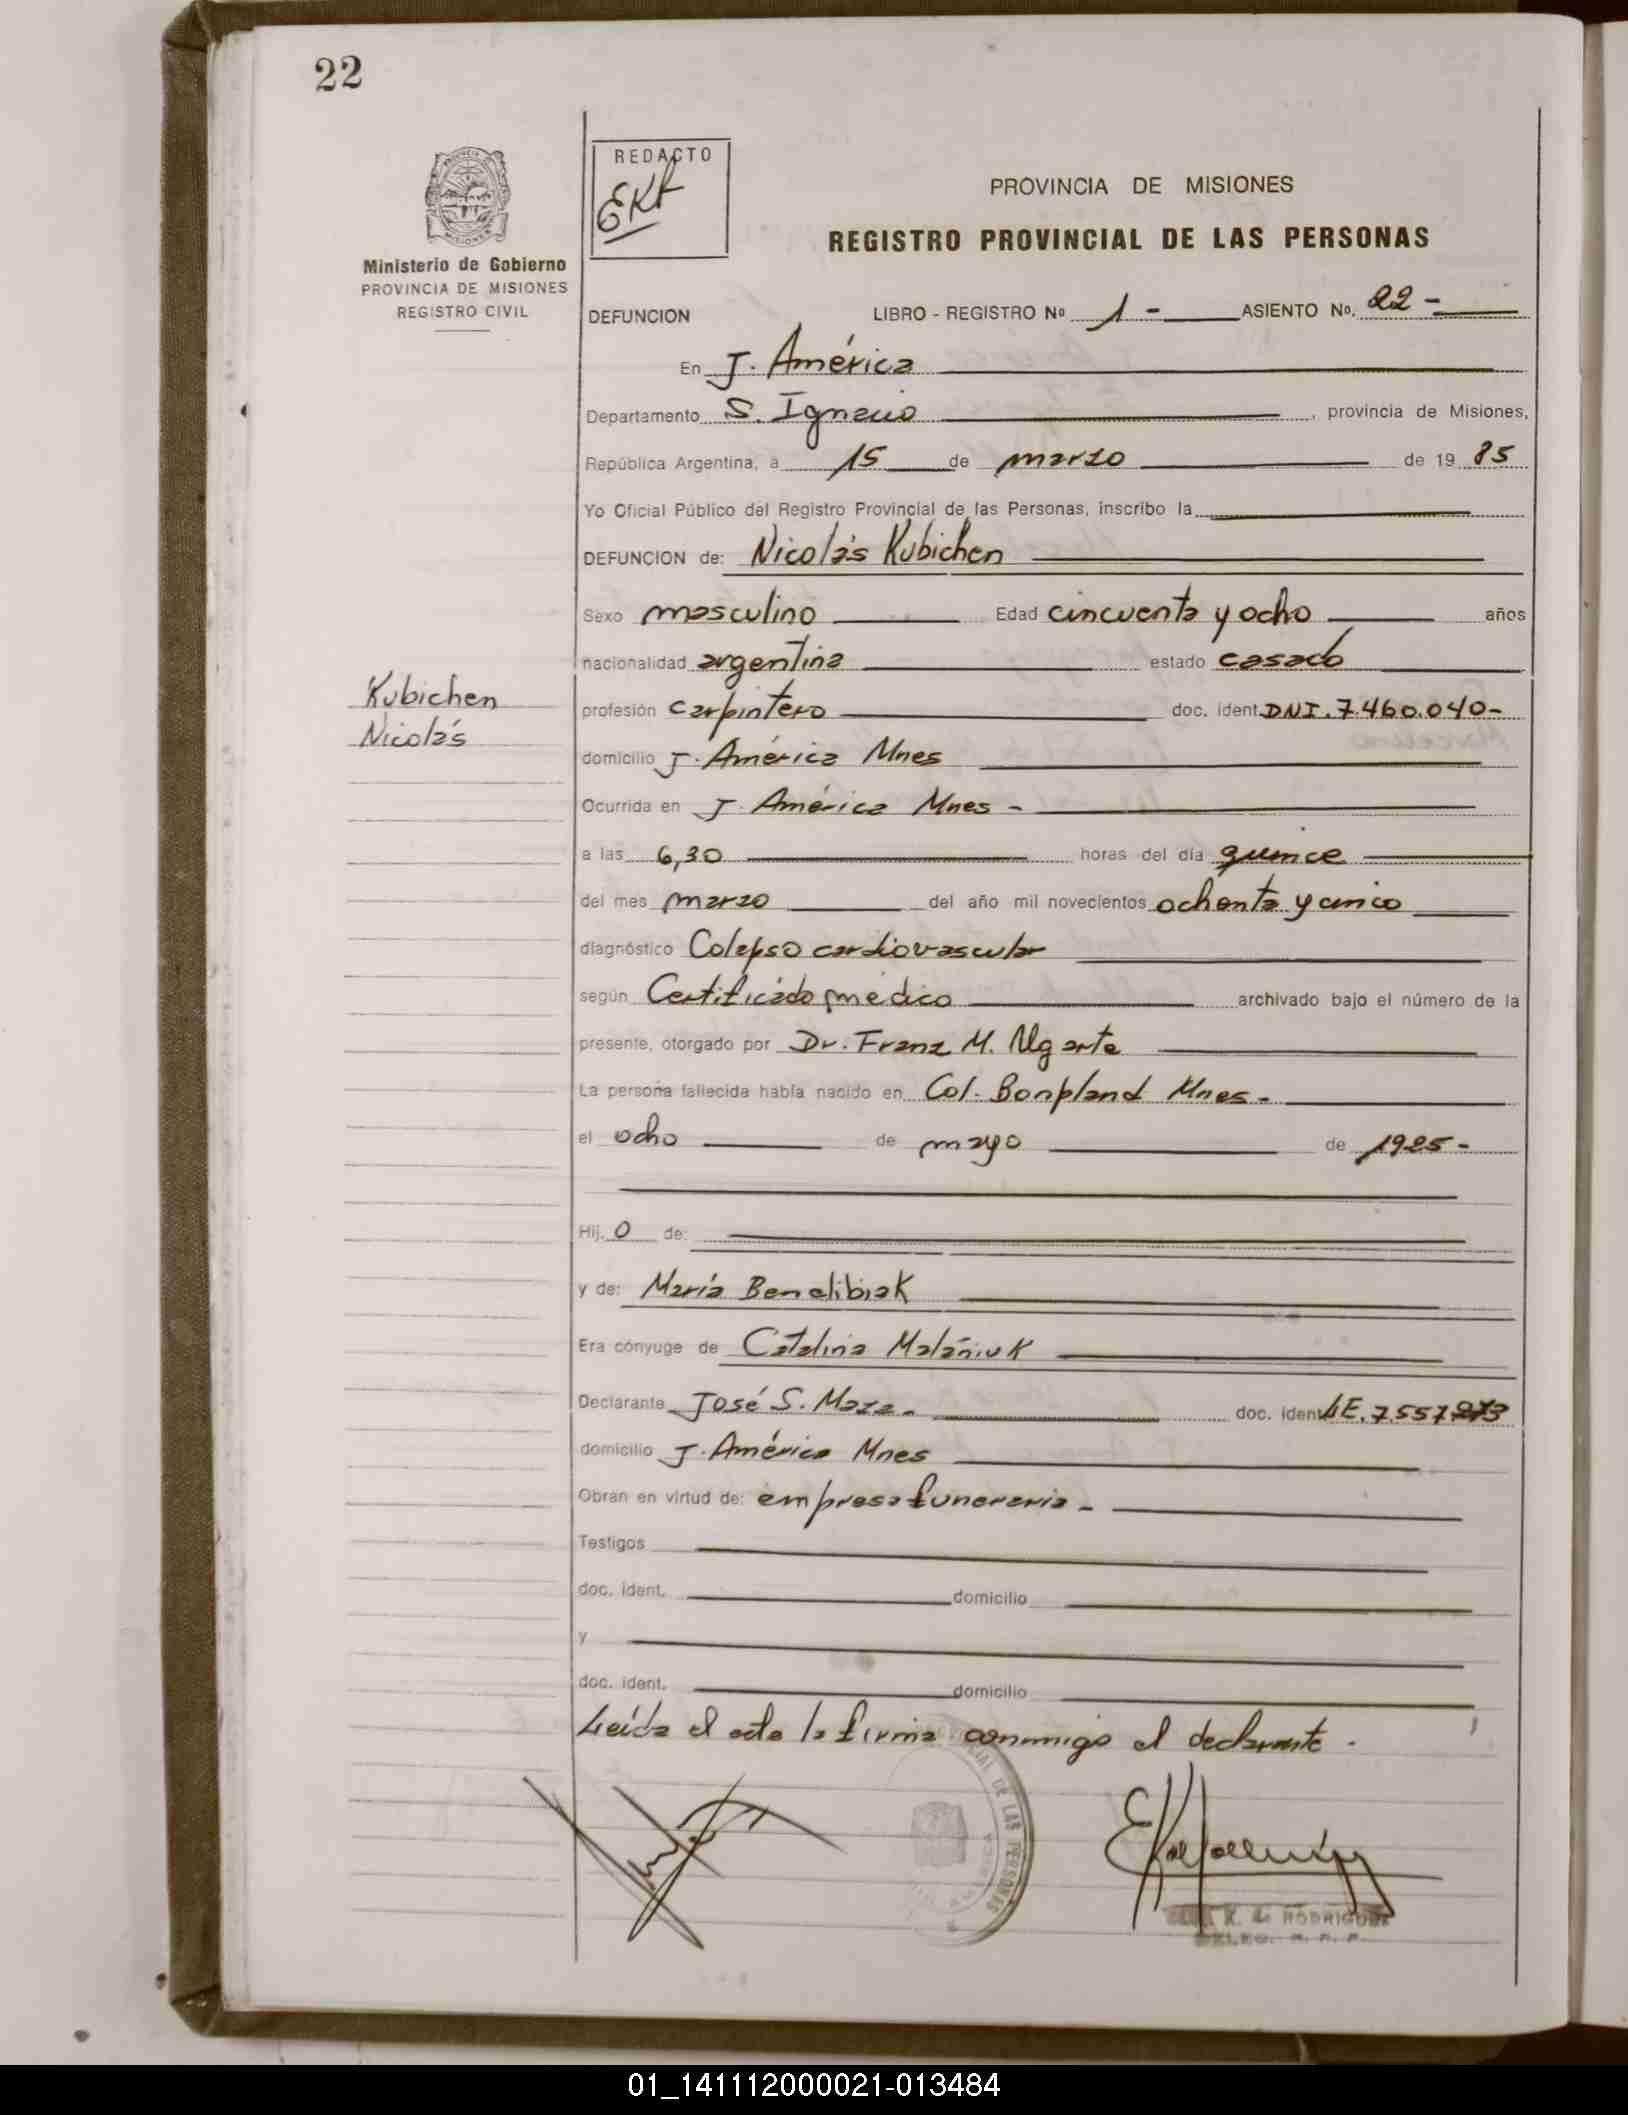 22
REDACTO
EKR
PROVINCIA DE MISIONES
REGISTRO PROVINCIAL DE LAS PERSONAS
Ministerio de Gobierno
PROVINCIA DE MISIONES
REGISTRO CIVIL
DEFUNCION LIBRO - REGISTRO Nº 1 - ASIENTO Nº. 22 -
En J. América
Departamento S. Ignacio , provincia de Misiones,
República Argentina, a 15 de marzo de 19 85
Yo Oficial Público del Registro Provincial de las Personas, inscribo la
DEFUNCION de: Nicolás Kubichen
Sexo masculino Edad cincuenta y ocho años
nacionalidad argentina estado casado
Kubichen
Nicolás
profesión carpintero doc. ident. DNI. 7.460.040-
domicilio J. América Mnes
Ocurrida en J. América Mnes -
a las 6,30 horas del día quince
del mes marzo del año mil novecientos ochenta y cinco
diagnóstico Colapso cardiovascular
según Certificado médico archivado bajo el número de la
presente, otorgado por Dr. Franz M. Ugarte
La persona fallecida había nacido en Col. Bonpland Mnes -
el ocho de mayo de 1925 -
Hij. o de:
y de: María Benalibiak
Era cónyuge de Catalina Malañiuk
Declarante José S. Maza - doc. ident. LE. 7.557
domicilio J. América Mnes
Obran en virtud de: empresa funeraria -
Testigos
doc. ident. domicilio
y
doc. ident. domicilio
Leída el acta la firma conmigo el declarante .
DE LAS PERSONAS
K. de RODRIGUEZ
DELEG. R. P. P.
01_141112000021-013484